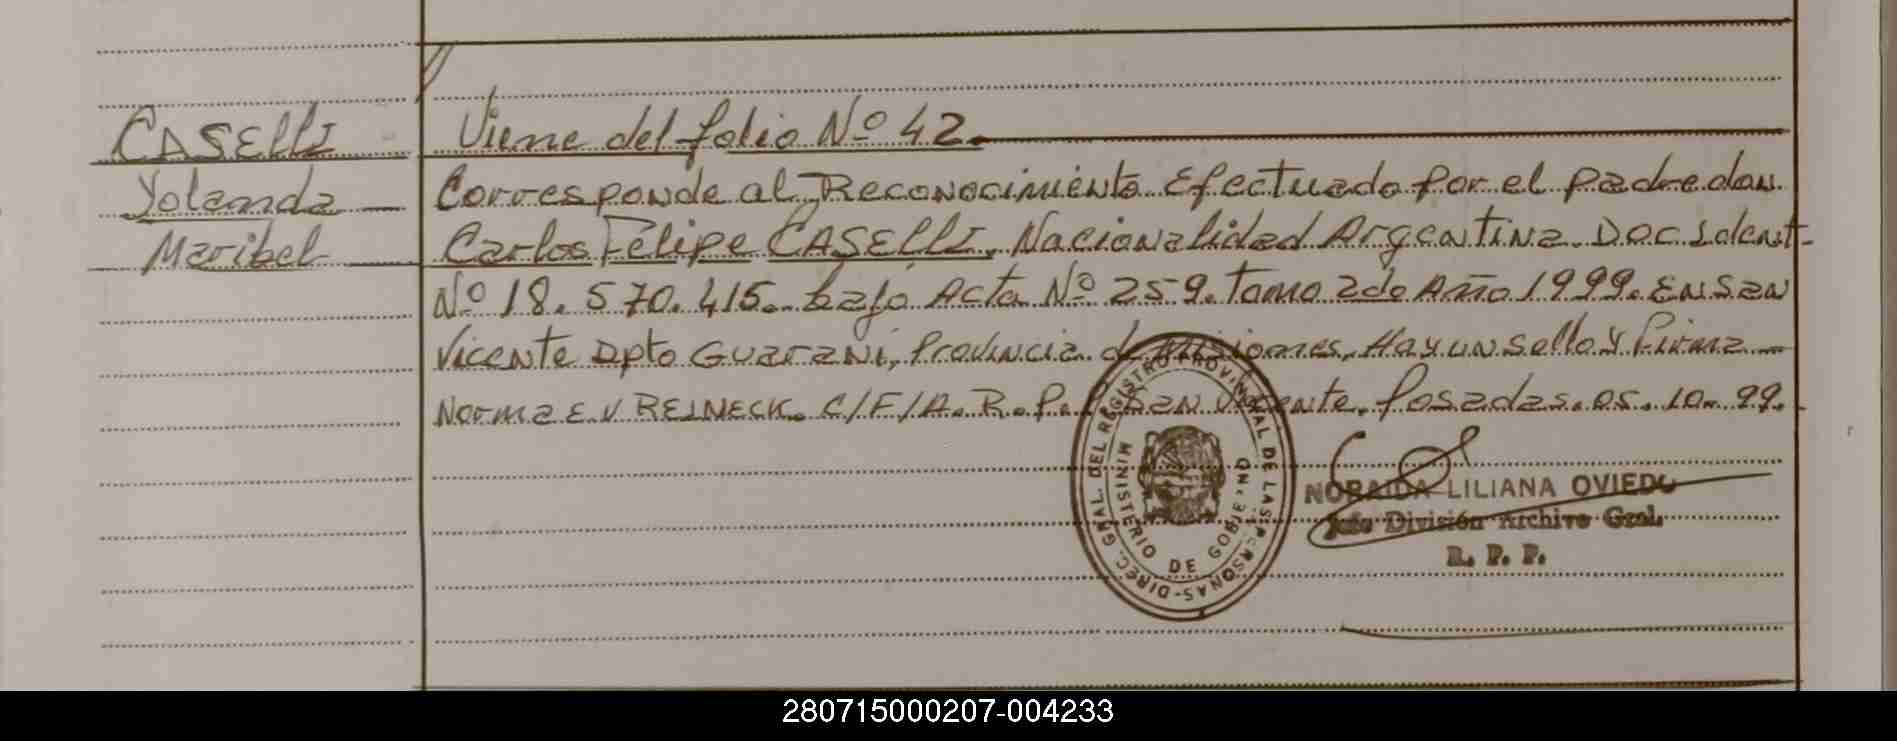 CASELLI
Yolanda
Maribel
Viene del folio Nº 42.
Corresponde al Reconocimiento Efectuado por el padre don
Carlos Felipe CASELLI, Nacionalidad Argentina. Doc Ident
Nº 18.570.415. bajo Acta Nº 259. Tomo 2do Año 1999. En San
Vicente Dpto Guarani, Provincia de Misiones, Hay un sello y Firma
Norma E V REINECK. C/F/A. R.P. San Vicente. Posadas. 05. 10. 99.
DIREC. GRAL. DEL REGISTRO PROVINCIAL DE LAS PERSONAS
MINISTERIO DE GOBIERNO
NORAIDA LILIANA OVIEDO
Jefe División Archivo Gral.
R. P. P.
280715000207-004233